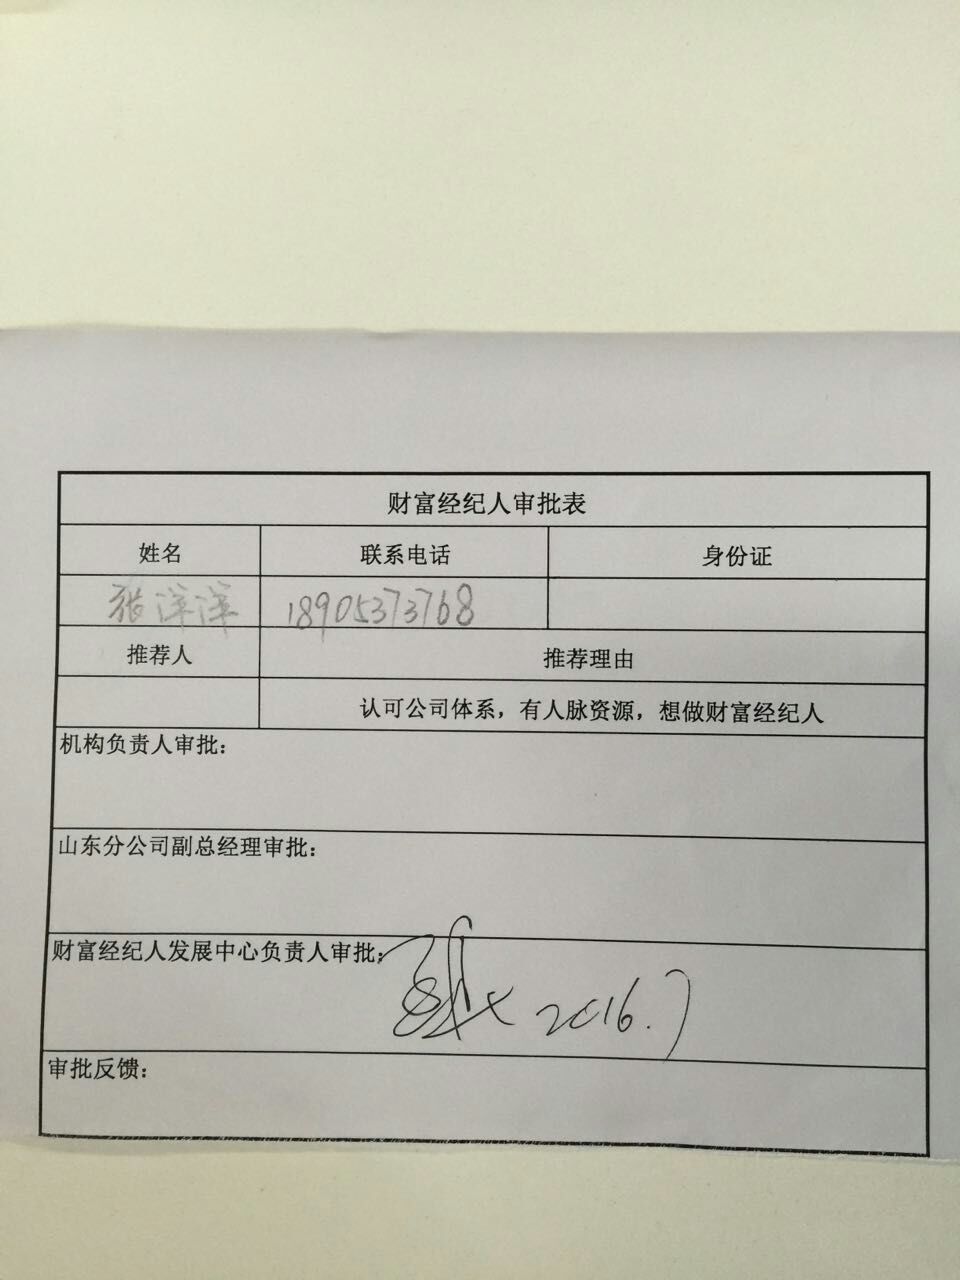 财富经纪人审批表
姓名 联系电话 身份证
张洋洋 18905373768
推荐人 推荐理由
认可公司体系，有人脉资源，想做财富经纪人
机构负责人审批：
山东分公司副总经理审批：
财富经纪人发展中心负责人审批：
2016.7
审批反馈：